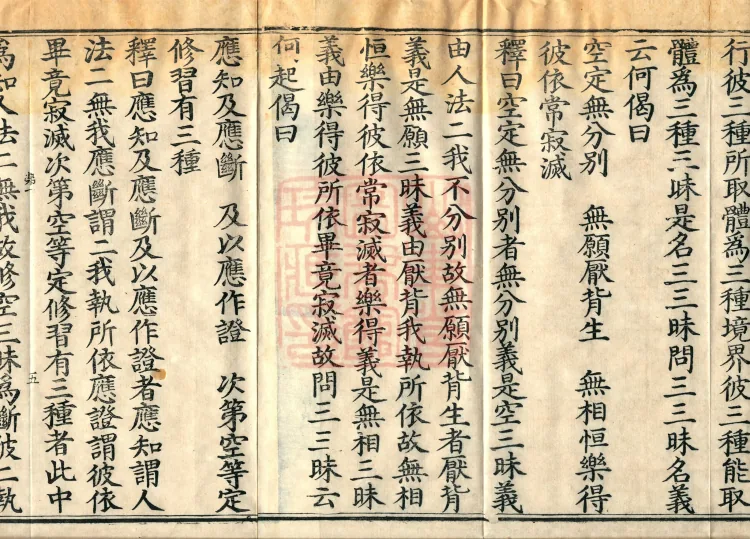 行彼三種所取體為三種境界彼三種能取
體為三種三昧是名三三昧問三三昧名義
云何偈曰
空定無分別　無願厭背生　無相恒樂得
彼依常寂滅
釋曰空定無分別者無分別義是空三昧義
由人法二我不分別故無願厭背生者厭背
義是無願三昧義由厭背我執所依故無相
恒樂得彼依常寂滅者樂得義是無相三昧
義由樂得彼所依畢竟寂滅故問三三昧云
何起偈曰
應知及應斷　及以應作證　次第空等定
修習有三種
釋曰應知及應斷及以應作證者應知謂人
法二無我應斷謂二我執所依應證謂彼依
畢竟寂滅次第空等定修習有三種者此中
五
為知人法二無我故修空三昧為斷彼二執